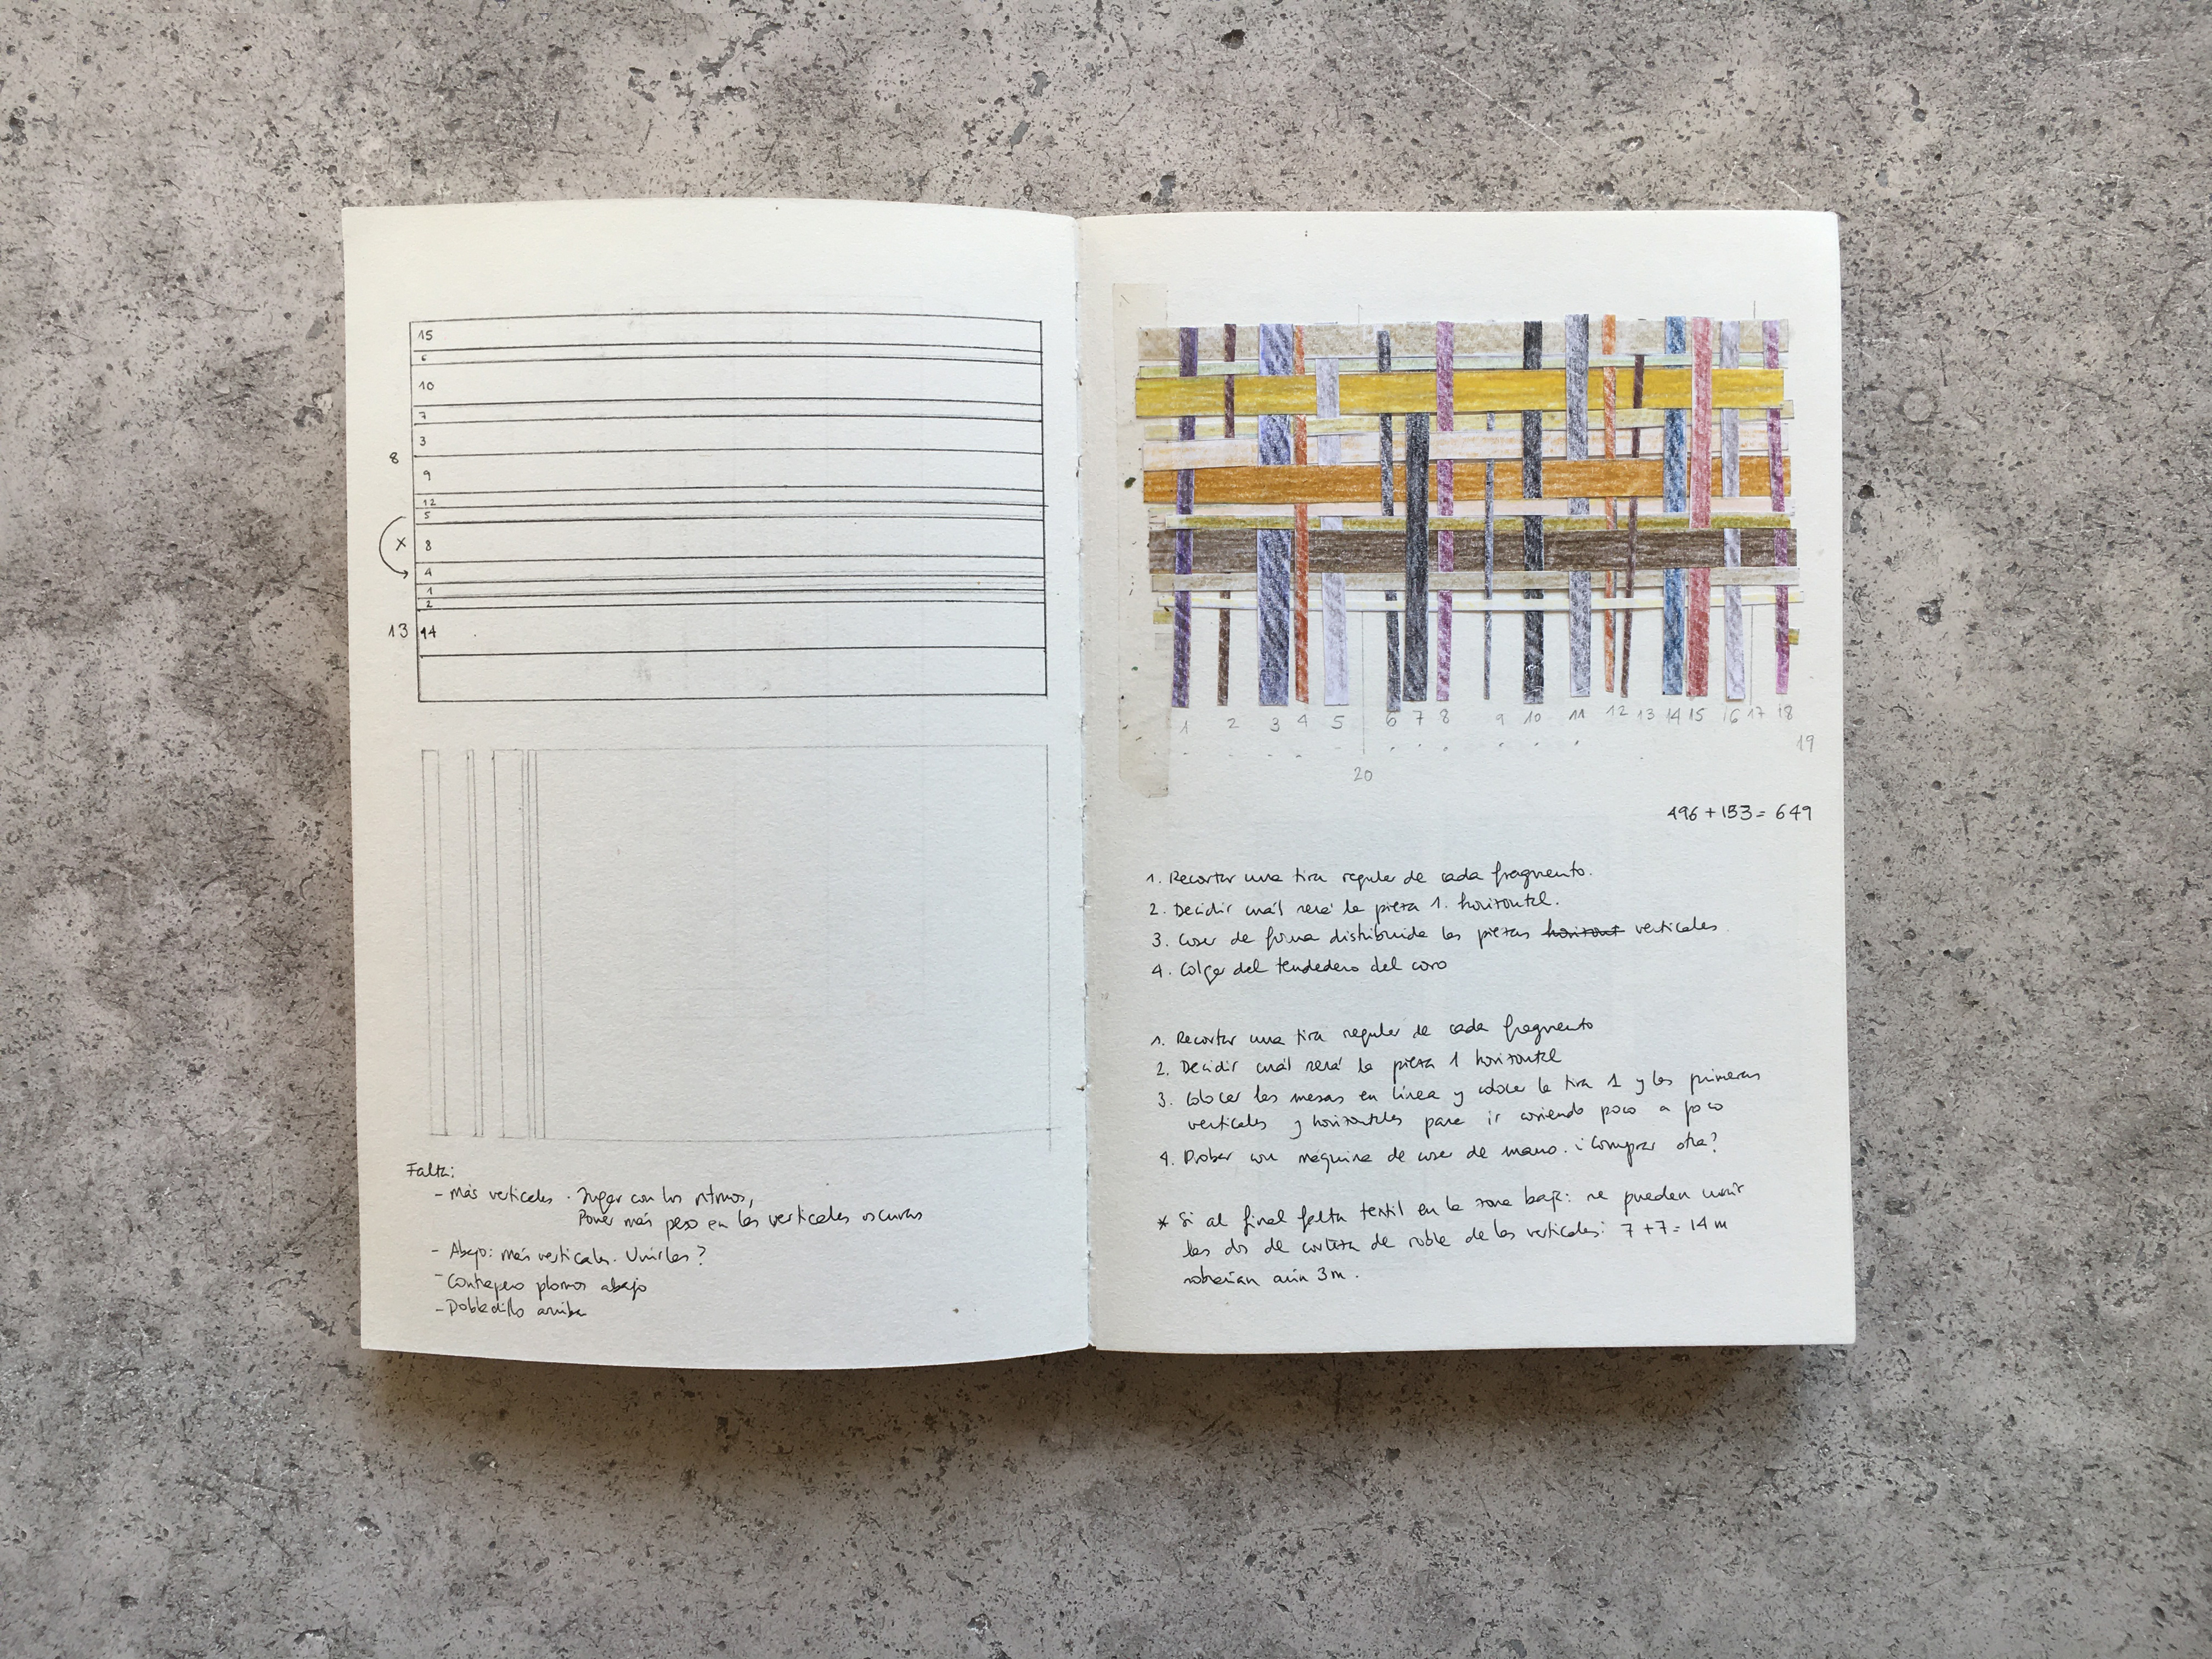 15
6
10
7
3
8
9
12
5
X
8
4
1
2
13 14
Falta:
- Más verticales. Jugar con los ritmos,
Poner más peso en las verticales oscuras
- Abajo: más verticales. Unirlas?
- Contrapeso plomos abajo
- Dobladillo arriba
1 2 3 4 5 6 7 8 9 10 11 12 13 14 15 16 17 18
19
20
496 + 153 = 649
1. Recortar una tira regular de cada fragmento.
2. Decidir cuál será la pieza 1. horizontal.
3. Coser de forma distribuida las piezas horizont verticales
4. Colgar del tendedero del coro
1. Recortar una tira regular de cada fragmento
2. Decidir cuál será la pieza 1 horizontal
3. Colocar las mesas en línea y colocar la tira 1 y las primeras
verticales y horizontales para ir cosiendo poco a poco
4. Probar con máquina de coser de mano. ¿Comprar otra?
* Si al final falta textil en la zona baja: se pueden unir
las dos de corteza de roble de las verticales: 7 + 7 = 14 m
sobrarían aún 3 m.